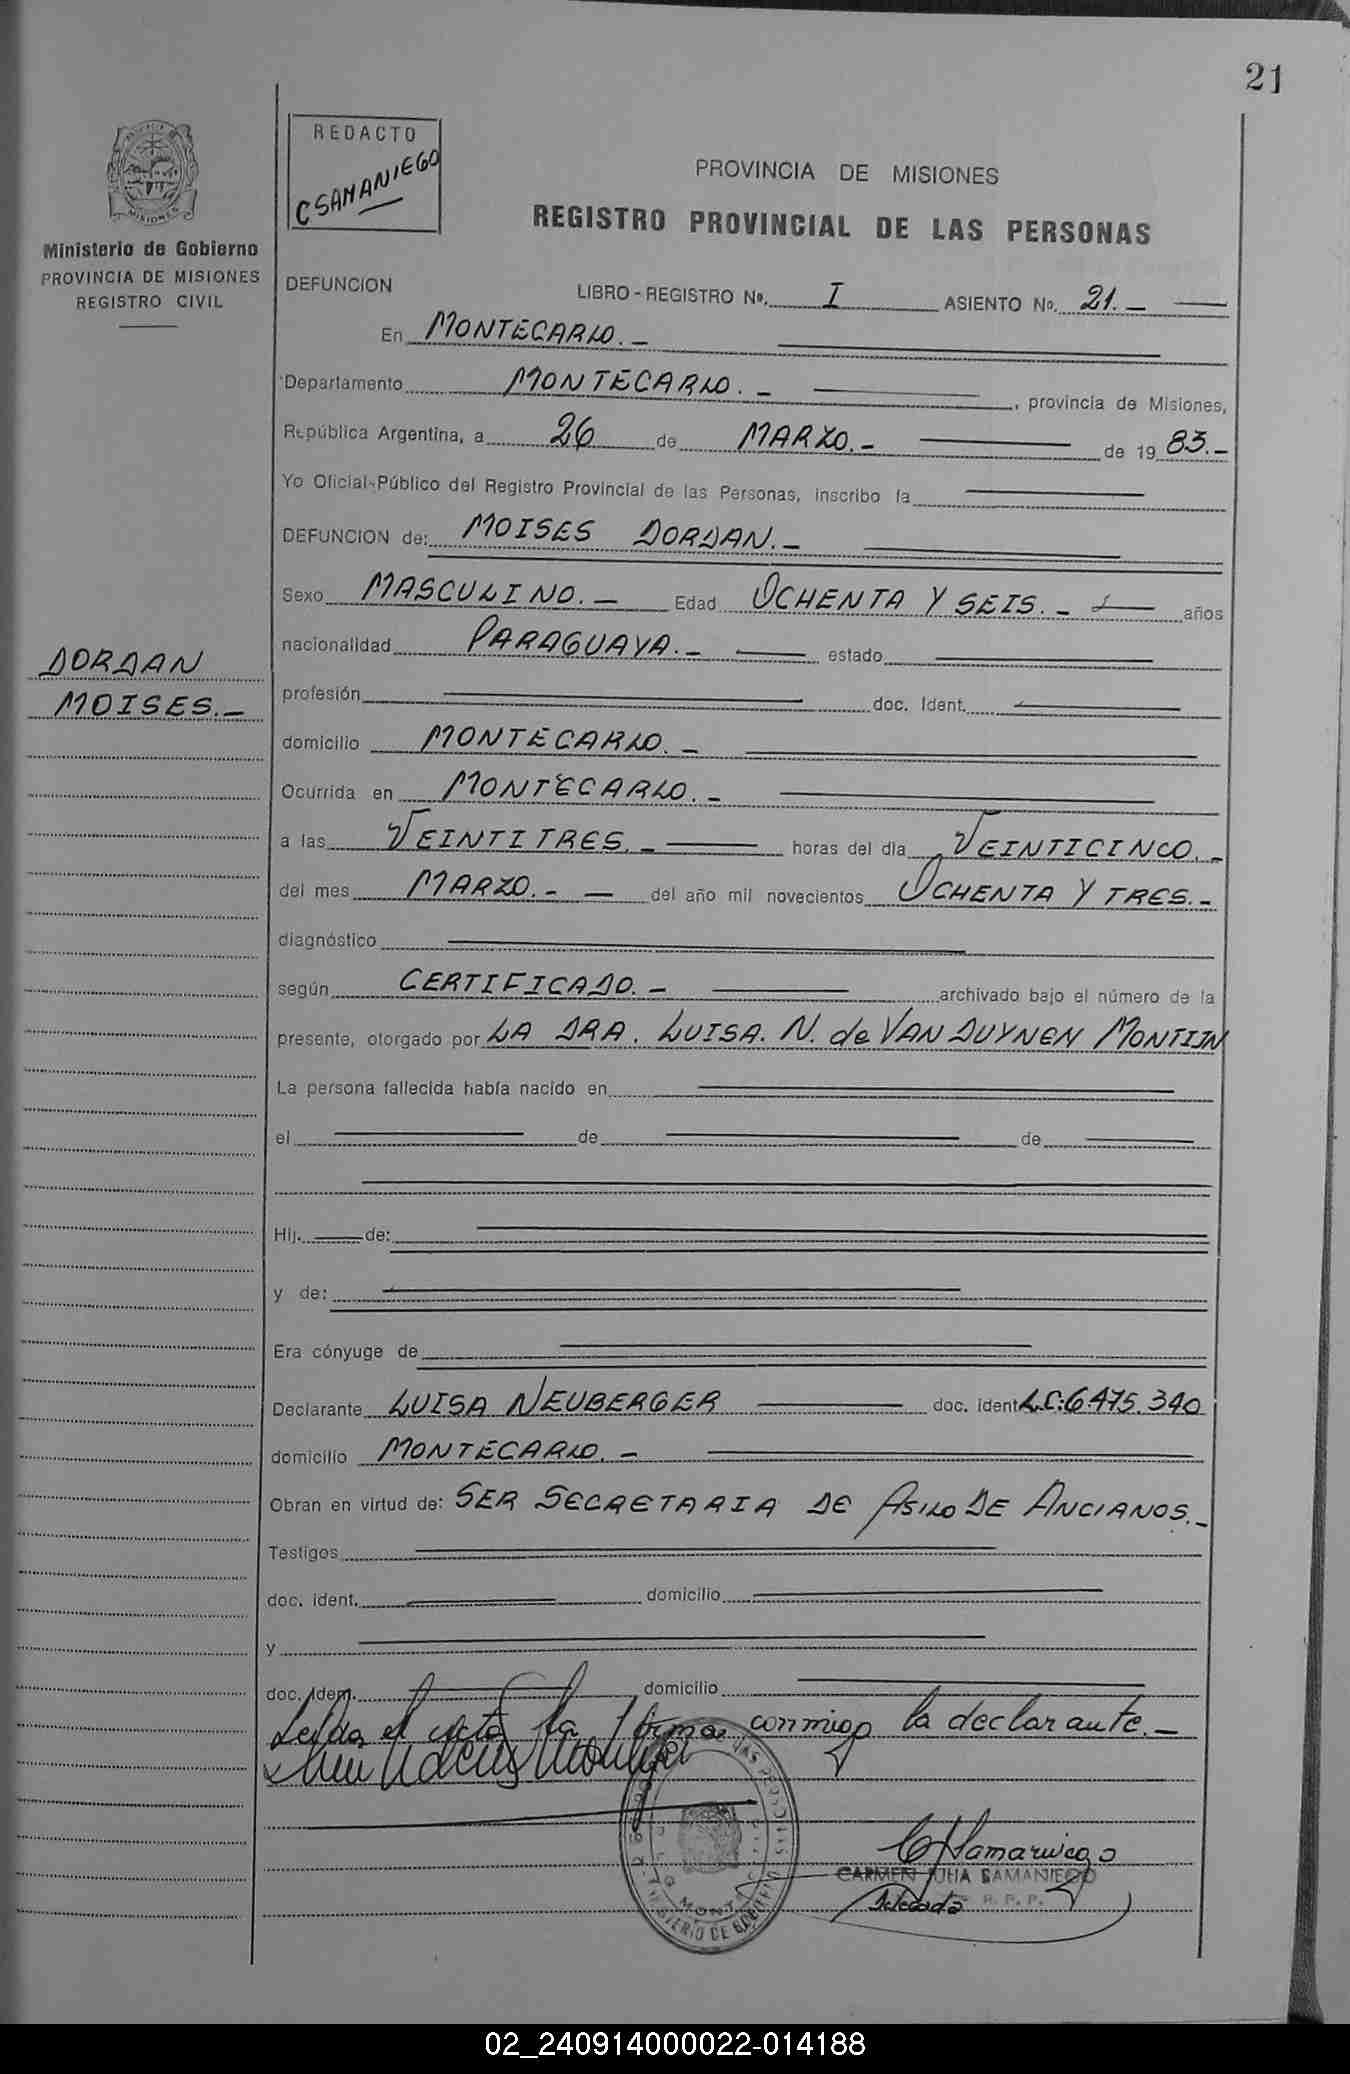 21
REDACTO
CSAMANIEGO
PROVINCIA DE MISIONES
REGISTRO PROVINCIAL DE LAS PERSONAS
MISIONES
Ministerio de Gobierno
PROVINCIA DE MISIONES
REGISTRO CIVIL
DORDAN
MOISES.-
DEFUNCION LIBRO-REGISTRO Nº. I ASIENTO Nº. 21.-
En MONTECARLO.-
Departamento MONTECARLO.- , provincia de Misiones,
República Argentina, a 26 de MARZO.- de 19 83.-
Yo Oficial Público del Registro Provincial de las Personas, inscribo la
DEFUNCION de: MOISES DORDAN.-
Sexo MASCULINO.- Edad OCHENTA Y SEIS.- años
nacionalidad PARAGUAYA.- estado
profesión doc. Ident.
domicilio MONTECARLO.-
Ocurrida en MONTECARLO.-
a las VEINTITRES.- horas del día VEINTICINCO.-
del mes MARZO.- - del año mil novecientos OCHENTA Y TRES.-
diagnóstico
según CERTIFICADO.- archivado bajo el número de la
presente, otorgado por LA DRA. LUISA. N. de VAN DUYNEN MONTIJN
La persona fallecida había nacido en
el de de
Hij. de:
y de:
Era cónyuge de
Declarante LUISA NEUBERGER doc. ident L.C:6.475.340
domicilio MONTECARLO.-
Obran en virtud de: SER SECRETARIA DE ASILO DE ANCIANOS.-
Testigos
doc. ident. domicilio
y
doc. ident. domicilio
Leida el acta la firma conmigo la declarante.-
CSamaniego
CARMEN JULIA SAMANIEGO
Delegada R. P. P.
02_240914000022-014188